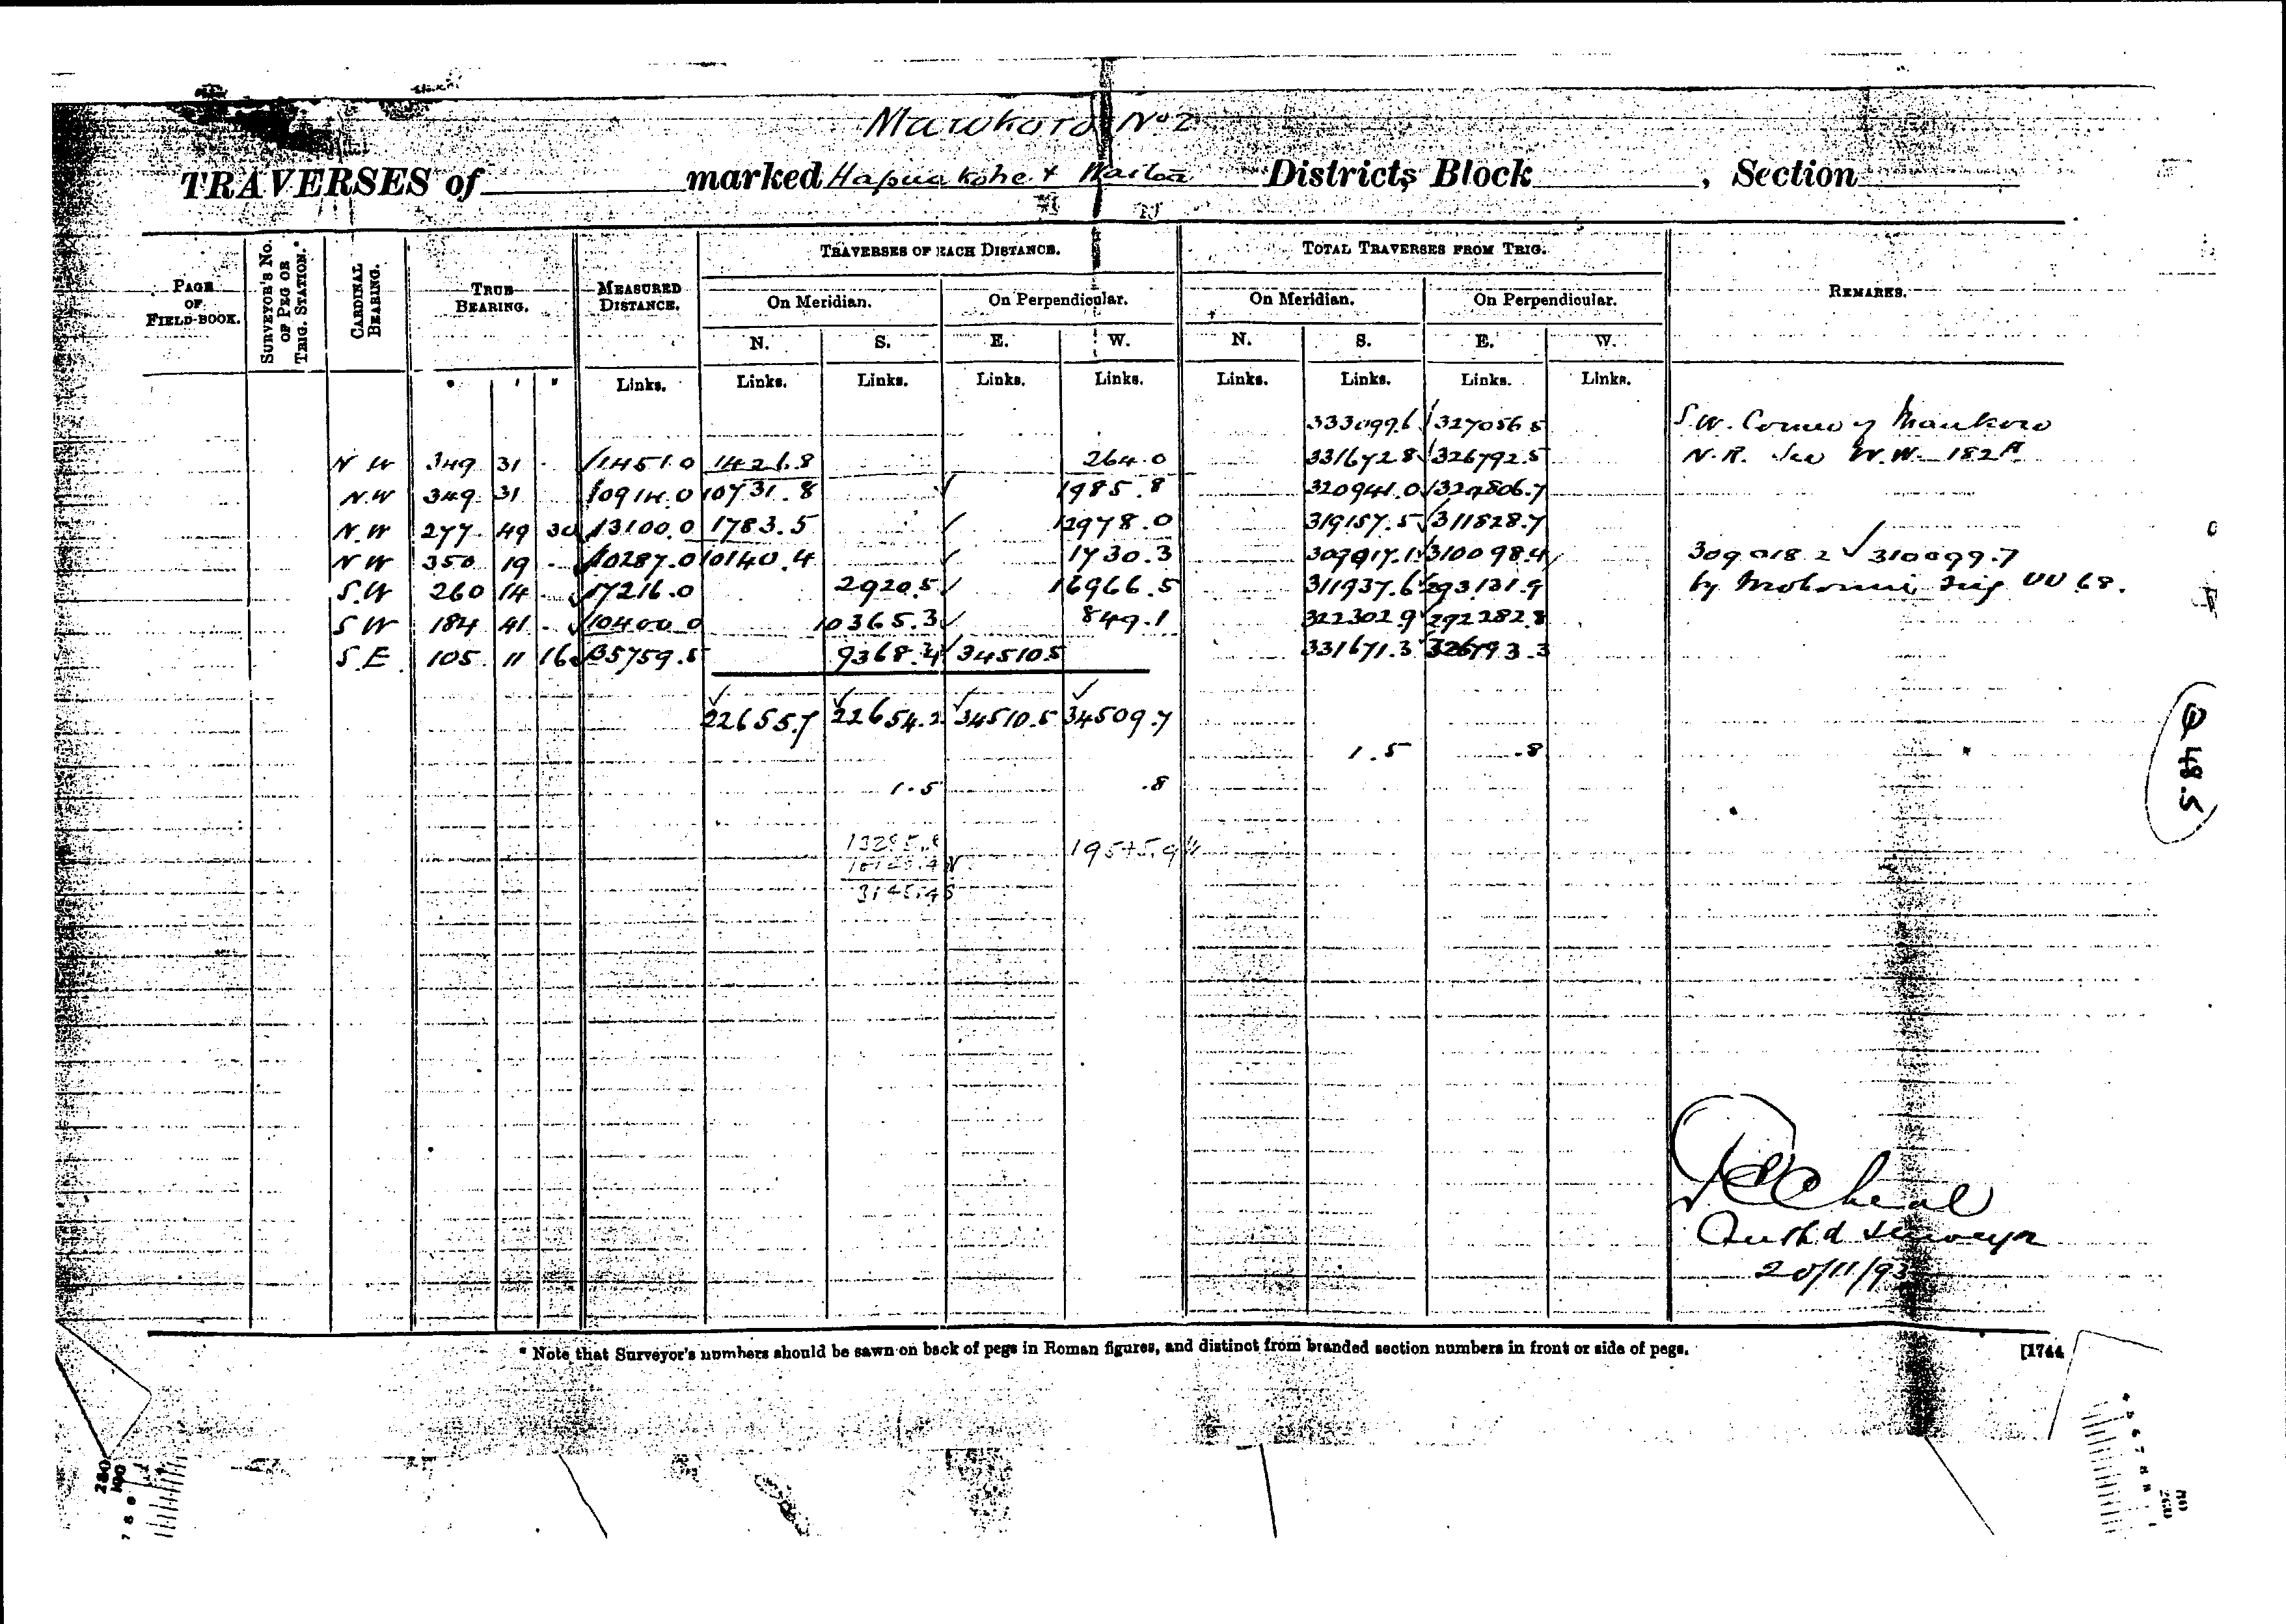 Maukoro No 2
TRAVERSES of marked Hapuakohe & Waitoa Districts Block , Section
PAGE OF FIELD-BOOK. SURVEYOR'S NO. OF PEG OR TRIG. STATION.* CARDINAL BEARING. TRUE BEARING. MEASURED DISTANCE. TRAVERSES OF EACH DISTANCE. TOTAL TRAVERSES FROM TRIG. REMARKS.
On Meridian. On Perpendicular. On Meridian. On Perpendicular.
N. S. E. W. N. S. E. W.
° ' " Links. Links. Links. Links. Links. Links. Links. Links. Links.
333099.6 327056.5 S.W. Corner of Maukoro
N W 349 31 - 1451.0 1426.8 264.0 331672.8 326792.5 N.R. See W.W. 182A
N.W 349 31 10914.0 10731.8 1985.8 320941.0 324806.7
N.W 277 49 30 13100.0 1783.5 12978.0 319157.5 311828.7
N W 350 19 - 10287.0 10140.4 1730.3 309017.1 310098.4 309018.2 ✓ 310099.7
S.W 260 14 - 17216.0 2920.5 16966.5 311937.6 293131.9 by Trig UU 68.
S W 184 41 - 10400.0 10365.3 849.1 322302.9 292282.8
S.E 105 11 16 35759.5 9368.4 34510.5 331671.3 326793.3
22655.7 22654.2 34510.5 34509.7
1.5 .8
1.5 .8
13285.8 19545.9 W
10140.4 N
3145.4 S
48.5
Cheal
Auth'd Surveyor
20/11/93
* Note that Surveyor's numbers should be sawn on back of pegs in Roman figures, and distinct from branded section numbers in front or side of pegs. [1744